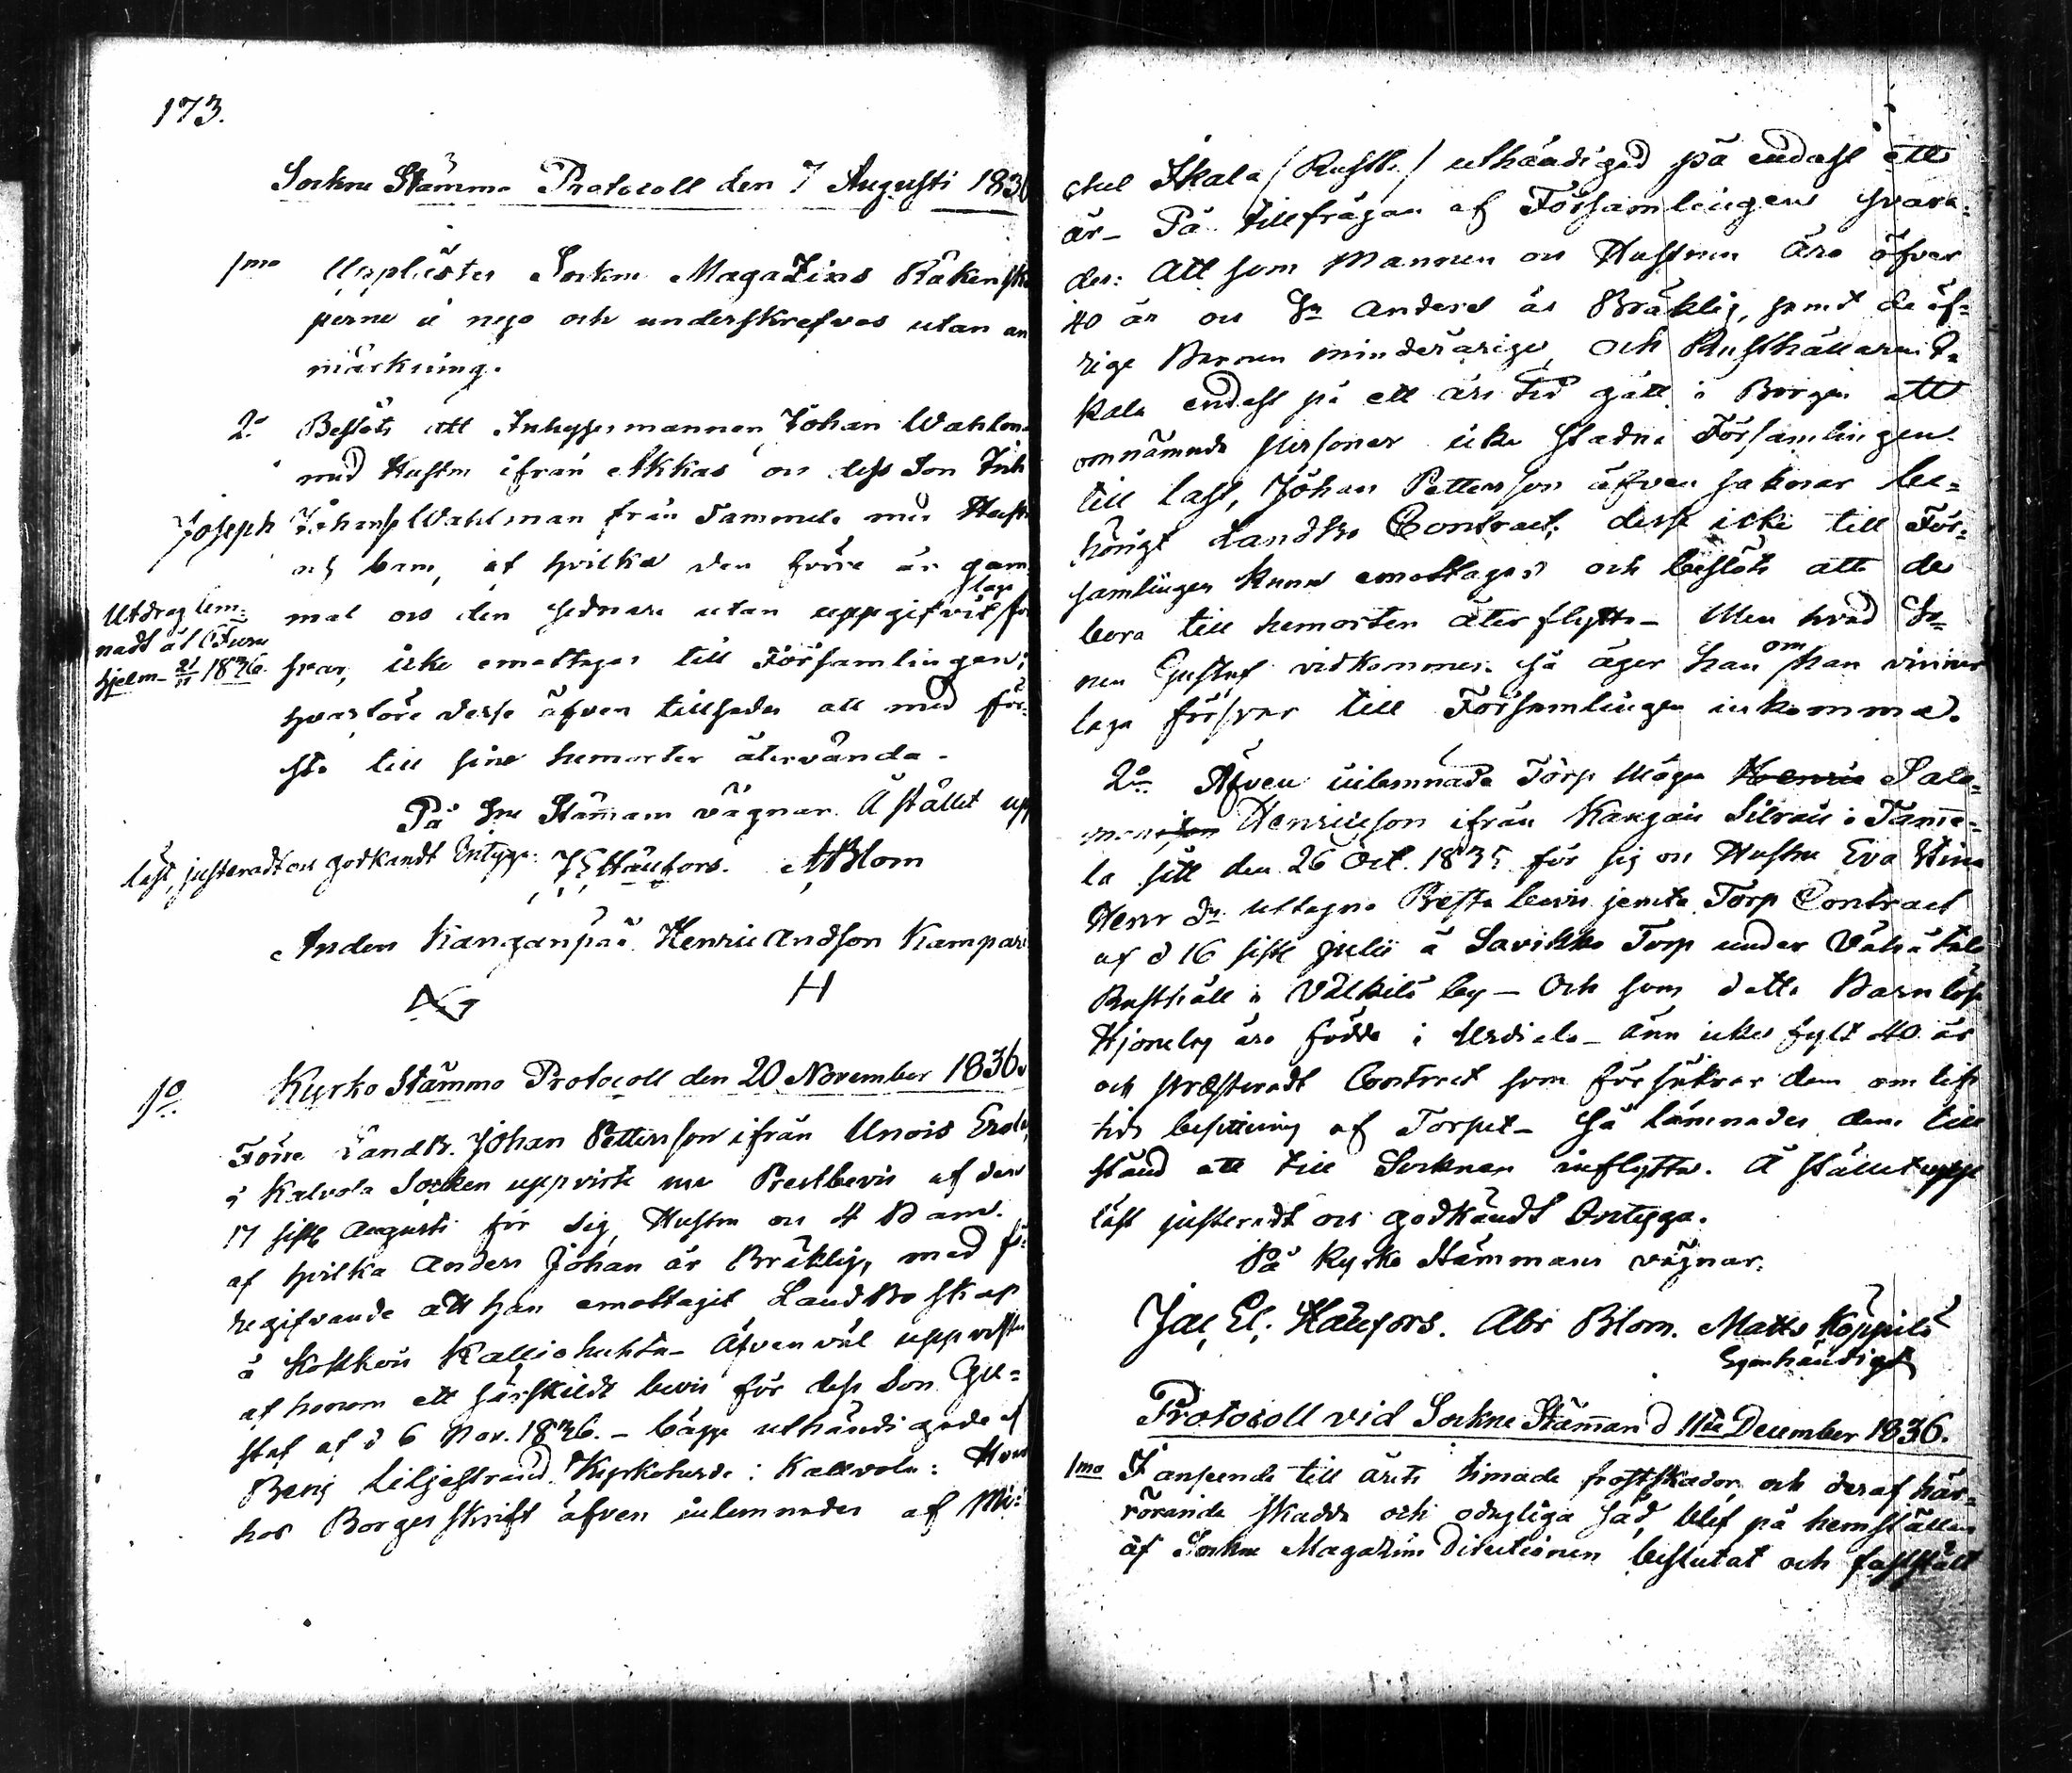 173.
Sockne Stämmo Protocoll den 7 Augusti 1836
1mo Upplästes Sockne Magazins Räkenska
perne å nyo och underskrefvos utan an
märkning.
2o Beslöts att Inhysesmannen Johan Wahlman
med Hustru ifrån Akkas och dess Son Inh
Joseph Johansson Wahlman från Tammela med Hustru
och barn, af hvilka den förre är gam
mal och den sednare utan uppgifvit laga för
svar, icke emottages till Församlingen;
hvarföre desse äfven tillsades att med för¬
sta till sine hemorter återvända.
Utdrag lem¬
nadt åt C Furu
hjelm 21/11 1836.
På Sne Stämmans vägnar. Å stället upp
läst, justeradt och godkändt Intyga: J E Hänfors. A Blom
Anders Kanganpää Henric Andson Kampari
H
Kyrko Stämmo Protocoll den 20 November 1836.
1o. Förre Landb. Johan Pettersson ifrån Unois Erola
i Kalvola Socken uppviste med Prestbevis af den
17 sistl Augusti för sig, Hustru och 4 Barn.
af hvilka Anders Johan är Bräklig, med fö¬
regifvande att han emottagit Landboskap
å Koskois Kalliohuhta – Äfvenväl uppvistes
af honom ett särskildt bevis för dess Son Gu¬
staf af d 6 Nov. 1836. – bägge uthändigade af
Benj Liljestrand Kyrkoherde i Kallvola: Hvar
hos Borgesskrift äfven inlemnades af Mi¬
chel Skala /Rusth./ uthändigad på endast ett
år – På tillfrågan af Församlingen svara¬
des: Att som Mannen och Hustrun äro öfver
40 år och Sn Anders är Bräklig, samt de öf¬
rige Barnen minderårige, och Rusthållaren S
kala endast på ett års tid gått i Borgen att
omnämnde personer icke skadne Församlingen
till last, Johan Pettersson äfven saknar be¬
hörigt Landbo Contract; desse icke till För¬
samlingen kunna emottagas och beslöts att de
bora till hemorten återflytta – Men hvad So¬
nen Gustaf vidkommer så äger han om han vinner
laga försvar till Församlingen inkomma.
2o Äfven inlemnade Torp Mågen Henric Salo¬
mon Henricsson ifrån Kangais Silvois i Tamme¬
la sitt den 26 Oct. 1835 för sig och Hustru Eva Stina
Henr dr uttagne Prestabevis jemte Torp Contract
af d 16 sistl Julii å Savikko Torp under Vähätalo
Rusthåll i Välkilä by – Och som dette Barnlösa
Hjonelag äro födde i Urdiala – ännu icke fyllt 40 år
och præsteradt Contract som försäkrar dem om lifs
tids besittning af Torpet – Så lämnades dem till
stånd att till Socknen inflytta. Å stället upp
läst justeradt och godkändt Intyga.
På Kyrko Stämmans vägnar.
Jac. El. Hänfors. Abr Blom. Matts Köppilä
Egenhändigt
Protocoll vid Sockne Stämman d 11te December 1836.
1mo I anseende till årets timade frostskador och deraf här¬
rörande skadde och odugliga säd, blef på hemställan
af Sockne Magazins Directionen beslutat och fastställt